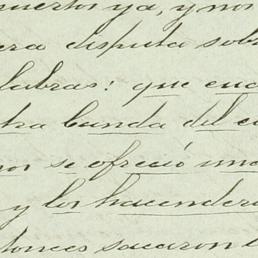 muertos ya, y nos
era disputa sob
labras: que cua
tra banda del c
or se ofreció una
y los hacendera
tonces sacaron l